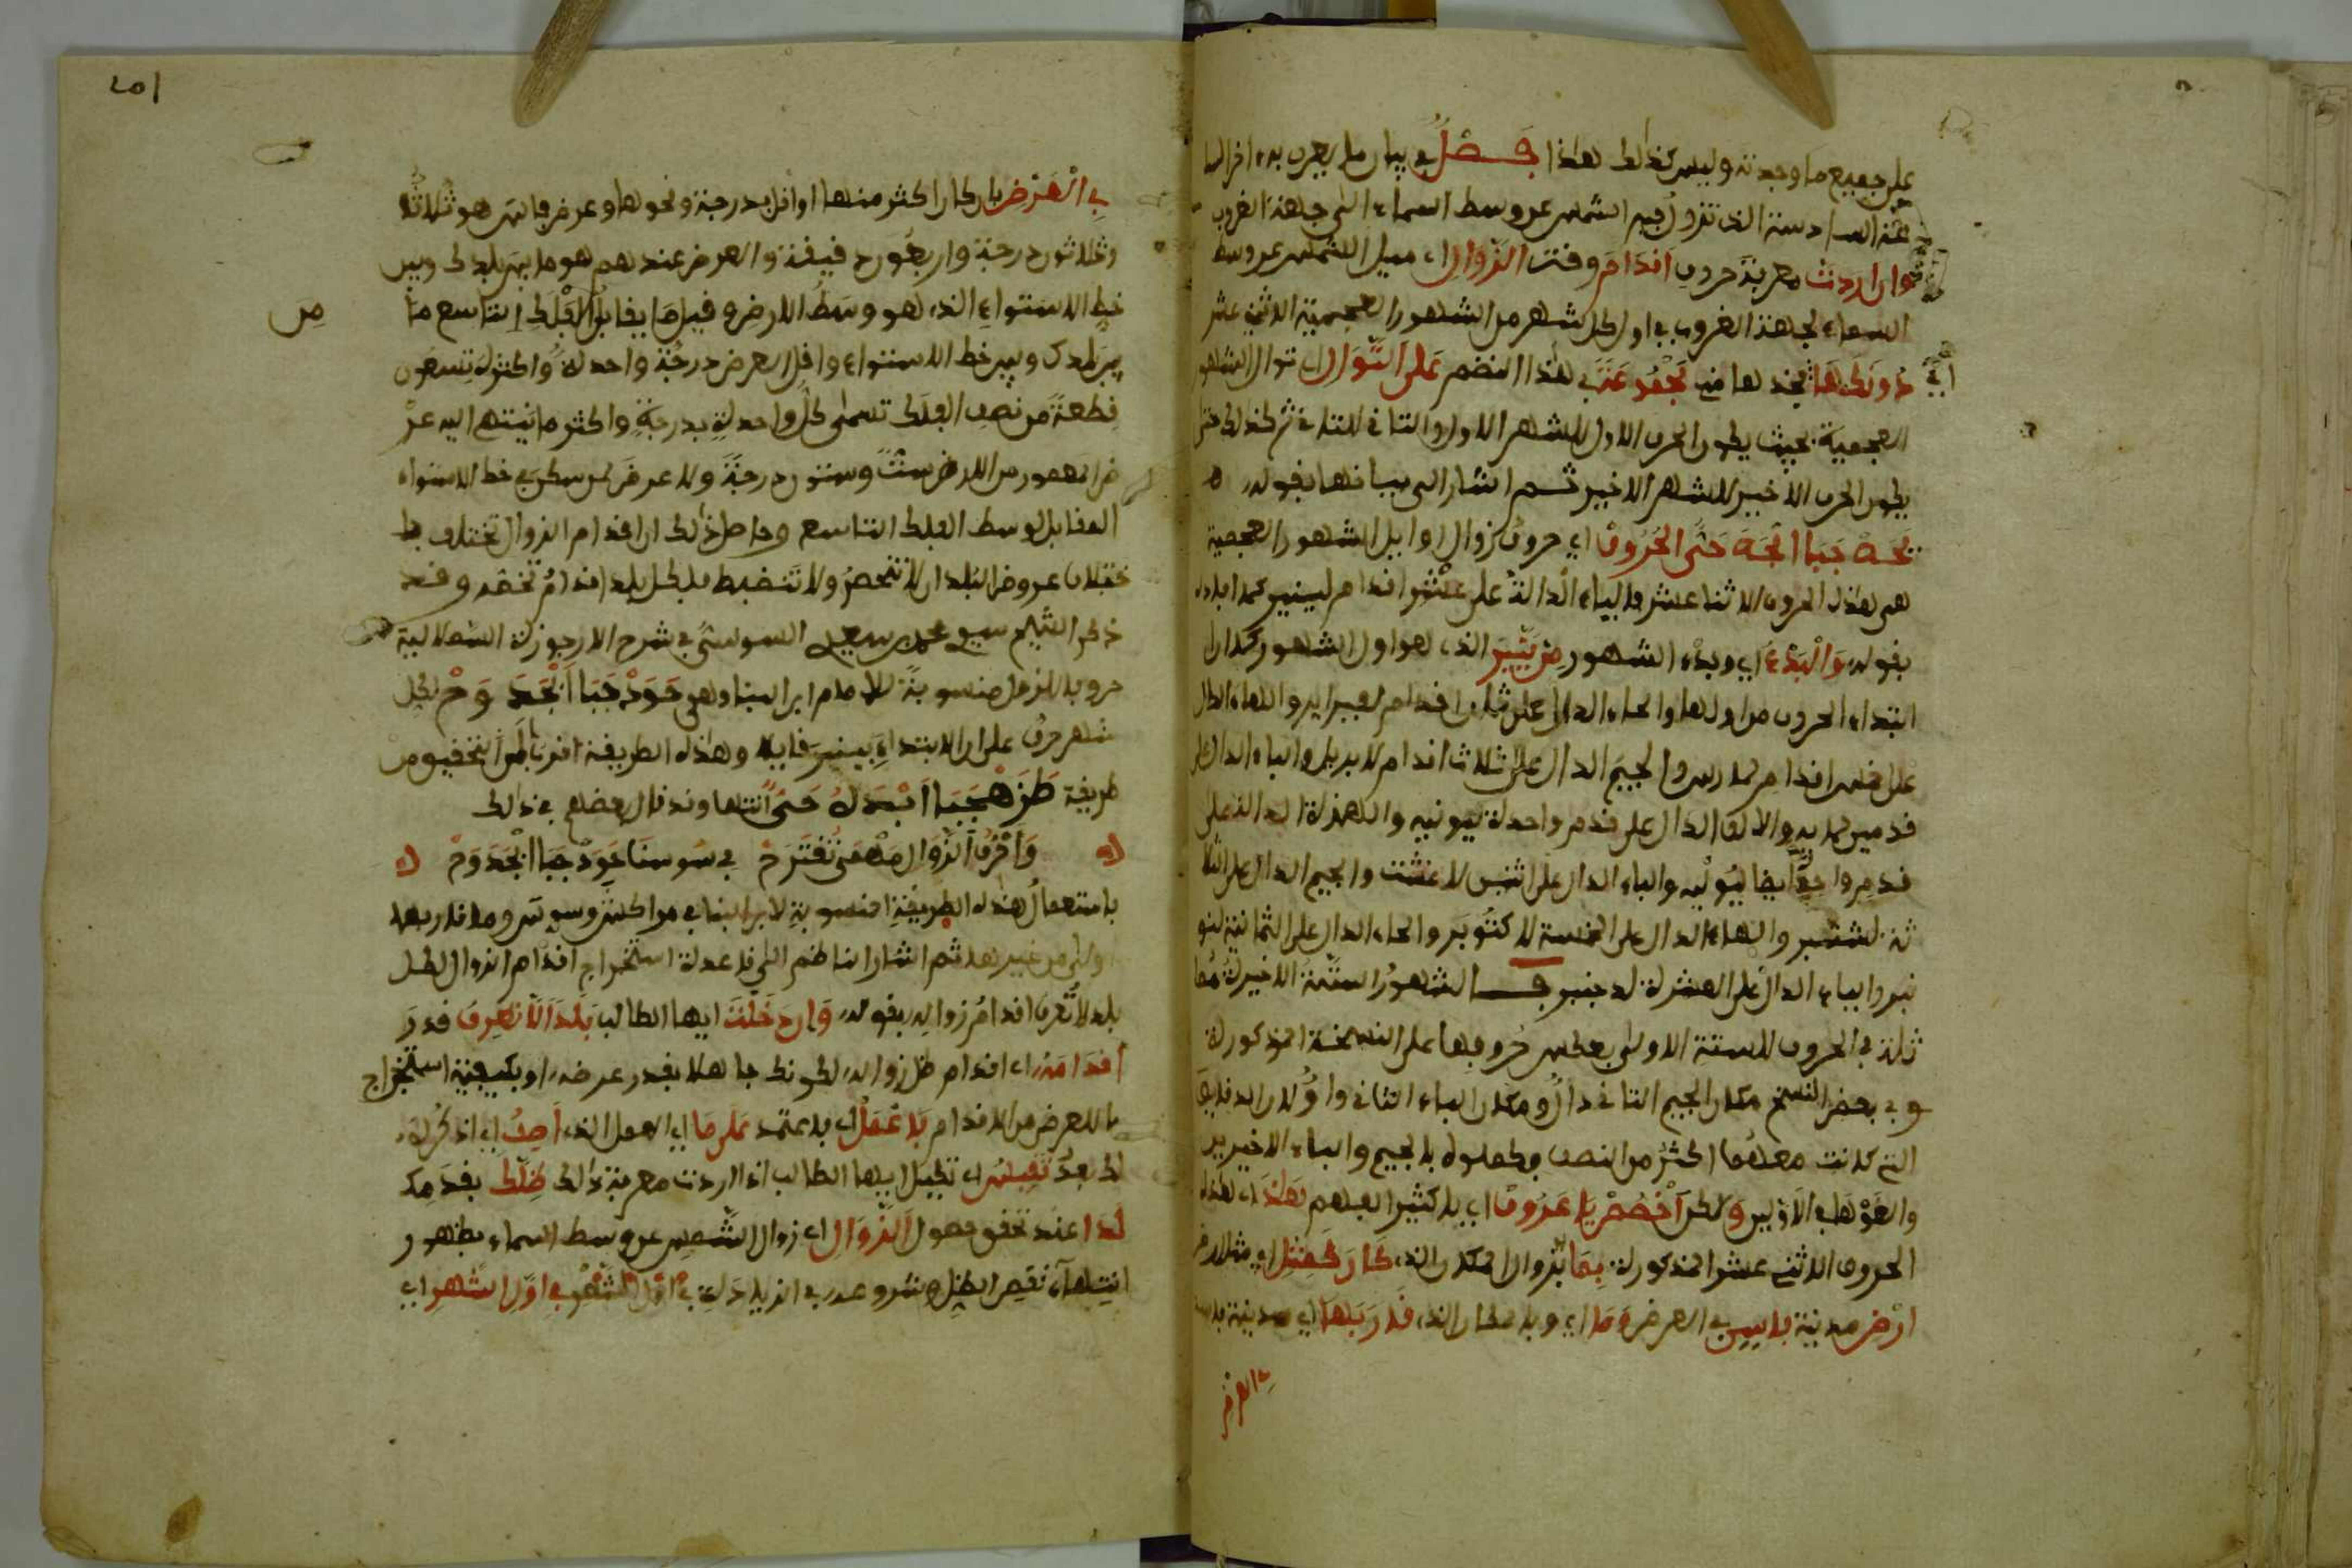 على جميع ما وجدته وليس كذلك هذا فصل في بيان ما يعرف به
السادسة التي تزول فيه الشمس عن وسط السماء إلى جهة الغروب
وان اردت معرفة حروف اقدام وقت الزوال اي ميل الشمس عن وسط
السماء لجهة الغروب في اول كل شهر من الشهور العجمية الاثني عشر
فخذها من في هذا النظم على التوال اي توال الشهور
العجمية بحيث يكون الحرف الاول للشهر الاول والثاني للثاني ثم كذلك حتى
يكون الحرف الاخير للشهر الاخير ثم اشار الى بيانها بقوله
حتى الحروف اي حروف زوال اوايل الشهور العجمية
هي هذه الحروف الاثنا عشر فالياء الدالة على عشر اقدام لينير كما
بقوله والبدء اي وبدء الشهور من ينير الذي هو اول الشهور كما ان
ابتداء الحروف من اولها والحاء الدال على ثمان اقدام لفبراير والهاء الدال
على خمس اقدام لمارس والجيم الدال على ثلاث اقدام لابريل والباء الدال على
قدمين لمايه والالف الدال على قدم واحدة ليونيه والهمزة الدالة على
قدم واحد ايضا ليوليه والباء الدال على اثنين لاغشت والجيم الدال على الثلا
ثة لشتنبر والهاء الدال على الخمسة لاكتوبر والحاء الدال على الثمانية لنو
نبر والياء الدال على العشرة لدجنبر فالشهور الستة الاخيرة مما
ثلة في الحروف للستة الاولى بعكس حروفها على النسخة المذكورة
وفي بعض النسخ مكان الجيم الثاني دال ومكان الباء الثاني واو
التي كانت معهما اكثر من النصف بالجيم والباء الاخيرين
ولكن اخصص يا عروف اي يا كثير الفهم هذه
الحروف الاثني عشر المذكورة بما بزوال المكان الذي كان كمثل اي مثل
ارض مدينة فاس في العرض وما اي وبالمكان الذي قاربها اي مدينة فاس
في العرض
في العرض بان كان اكثر منها او اقل بدرجة ونحوها وعرض فاس هو ثلاثة
وثلاثون درجة واربعون دقيقة والعرض عندهم هو ما بين بلدك وبين
خط الاستواء الذي هو وسط الارض وقيل ما يقابل الفلك التاسع ما
بين بلدك وبين خط الاستواء واقل العرض درجة واحدة واكثره تسعون
قطعة من نصف الفلك تسمى كل واحدة بدرجة واكثر ما ينتهي اليه عر
ض المعمور من الارض ست وستون درجة ولا عرض لمن سكن في خط الاستواء
المقابل لوسط الفلك التاسع وحاصل ذلك ان اقدام الزوال تختلف با
ختلاف عروض البلدان لا تنحصر ولا تنضبط بل لكل بلد اقدام تخصه وقد
ذكر الشيخ سيدي محمد بن سعيد السوسي في شرح الارجوزة السملالية
حروفا للزوال منسوبة للامام ابن البنا وهي حودجبا ابجد وح لكل
شهر حرف على ان الابتداء بينير قايلا وهذه الطريقة اقرب للتحقيق من
طريقة طزهجبا ابدك حي انتهى وقد قال بعضهم في ذلك
واحرف الزوال مهمى تقترح في سوسنا حودجبا ابجدوح
باستعمال هذه الطريقة المنسوبة لابن البنا في مراكش وسوس وما قاربهما
اولى من غيرها ثم اشار الناظم الى قاعدة استخراج اقدام الزوال لكل
بلد لا تعرف اقدام زواله بقوله وان دخلت ايها الطالب بلدا لا تعرف قدر
اقدامه اي اقدام ظل زواله لكونك جاهلا بقدر عرضه او بكيفية استخراج
ما للعرض من الاقدام فاعمل اي فاعتمد على ما اي العمل الذي اصف اي اذكره
لك بعد تقيس اي تكيل ايها الطالب اذا اردت معرفة ذلك ظلك بقدمك
لدا عند تحقق حصول الزوال اي زوال الشمس عن وسط السماء بظهور
انتهاء نقص الظل وشروعه في الزيادة في اول الشهر اي